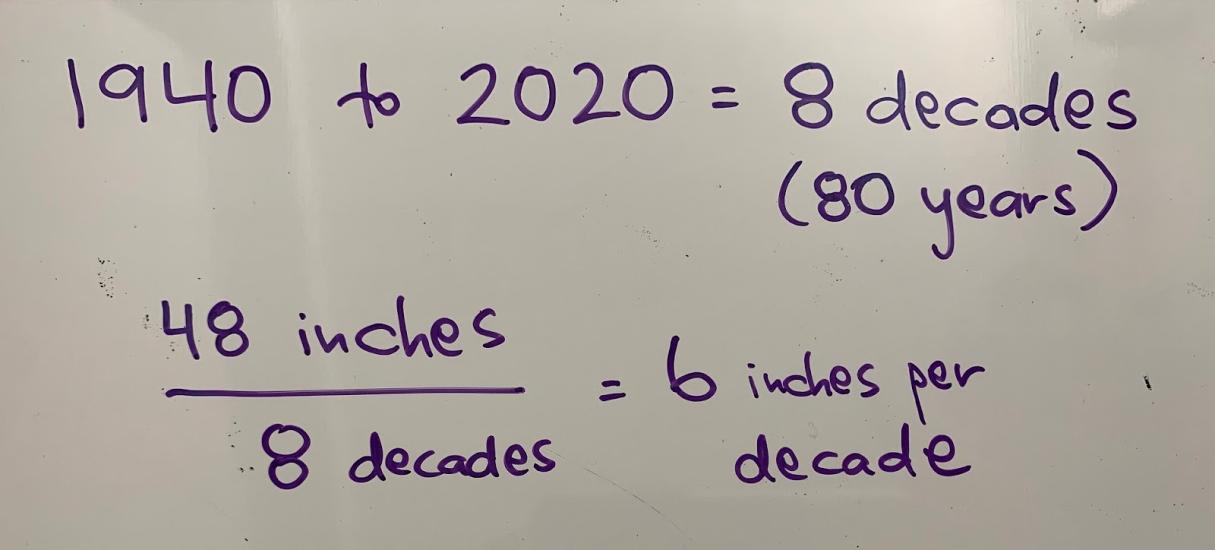 1940 to 2020 = 8 decades
(80 years)
48 inches
8 decades
= 6 inches per
decade